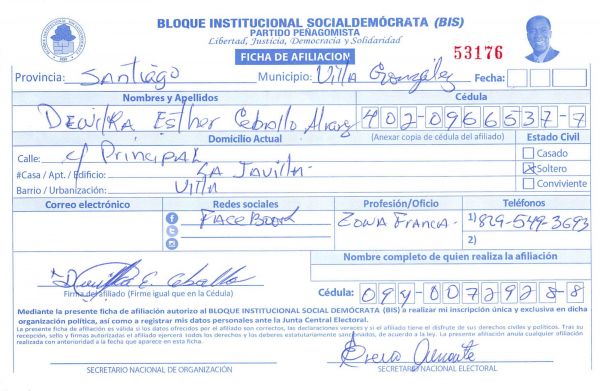 BLOQUE INSTITUCIONAL SOCIALDEMÓCRATA (BIS)
PARTIDO PEÑAGOMISTA
Libertad, Justicia, Democracia y Solidaridad
FICHA DE AFILIACION
53176
Provincia: Santiago Municipio: Villa González Fecha:
Nombres y Apellidos Cédula
Esther Ceballo 402-0966537-7
Domicilio Actual (Anexar copia de cédula del afiliado) Estado Civil
Calle: c/ Principal Casado
#Casa / Apt. / Edificio: LA Javilla Soltero
Barrio / Urbanización: Conviviente
Correo electrónico Redes sociales Profesión/Oficio Teléfonos
FaceBook ZONA FRANCA 1) 829-549-3693
2)
Nombre completo de quien realiza la afiliación
Firma del afiliado (Firme igual que en la Cédula)
Cédula: 094-0072928-8
Mediante la presente ficha de afiliación autorizo al BLOQUE INSTITUCIONAL SOCIAL DEMÓCRATA (BIS) a realizar mi inscripción única y exclusiva en dicha
organización política, así como a registrar mis datos personales ante la Junta Central Electoral.
La presente ficha de afiliación es válida si los datos ofrecidos por el afiliado son correctos, las declaraciones veraces y si el afiliado tiene el disfrute de sus derechos civiles y políticos. Tras su
recepción, sello y firmas autorizadas el afiliado ejercerá todos los derechos y los deberes estatutariamente sancionados, de acuerdo a la ley. La presente afiliación anula cualquier afiliación
realizada con anterioridad a la fecha que aparece en esta ficha.
SECRETARIO NACIONAL DE ORGANIZACIÓN SECRETARIO NACIONAL ELECTORAL